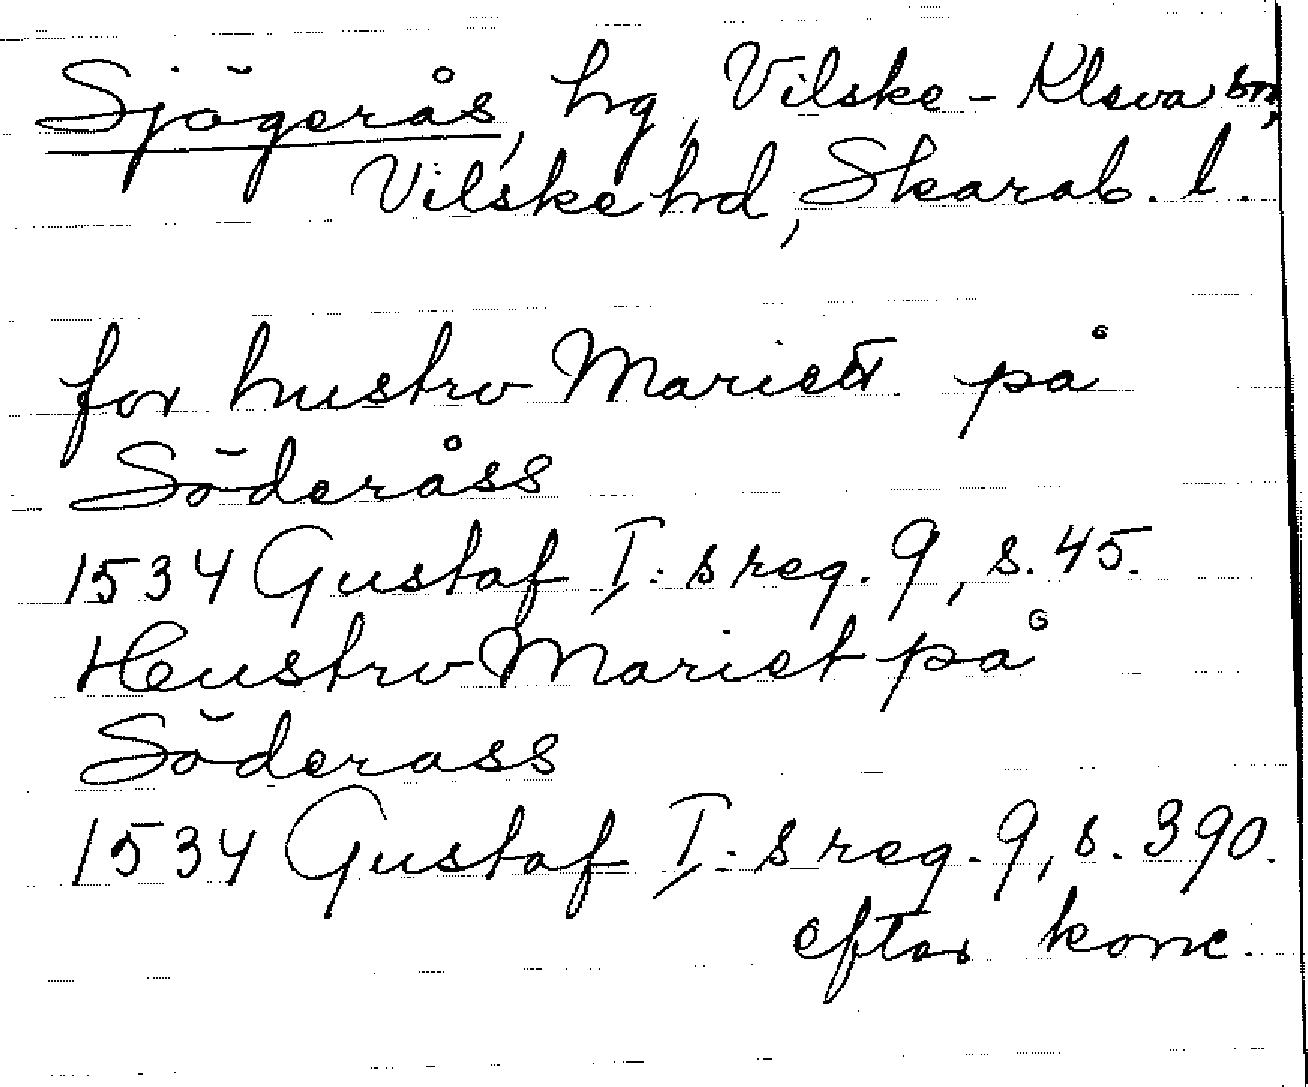 Sjögerås, hg, Vilske-Kleva sn,
Vilske hd, Skarab. l.
for hustrv Marictt på
Söderåss
1534 Gustaf I:s reg. 9, s. 45.
Heustrv Mariet på
Söderass
1534 Gustaf I:s reg. 9, s. 390.
efter konc.